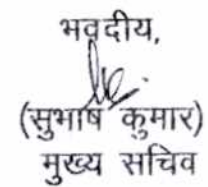 भवदीय,
(सुभाष कुमार)
मुख्य सचिव